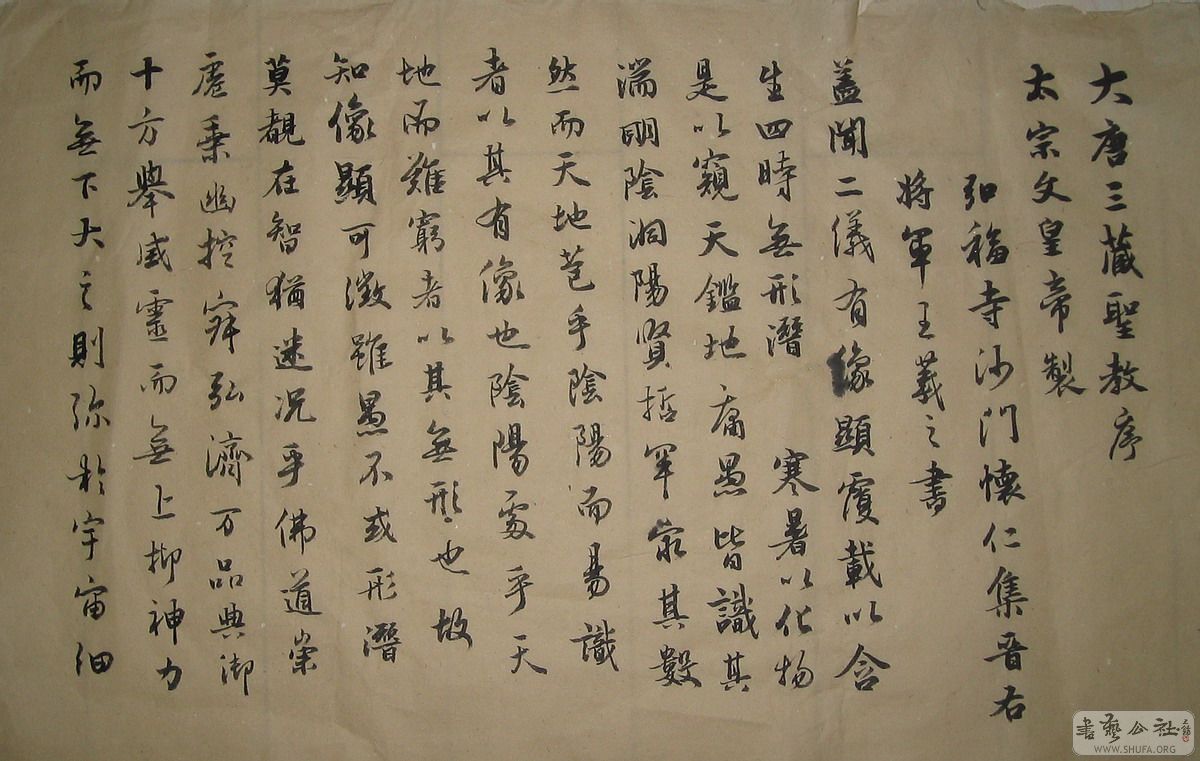 大唐三藏聖教序
太宗文皇帝製
弘福寺沙門懷仁集晉右
将軍王羲之書
盖聞二儀有像顯覆載以含
生四時無形潛寒暑以化物
是以窺天鑑地庸愚皆識其
湍明陰洞陽賢哲罕窮其數
然而天地苞乎陰陽而易識
者以其有像也陰陽處乎天
地而難窮者以其無形也故
知像顯可徵雖愚不惑形潛
莫覩在智猶迷况乎佛道崇
虛乘幽控寂弘濟万品典御
十方舉威靈而無上抑神力
而無下大之則弥於宇宙細
書藝公社
WWW.SHUFA.ORG